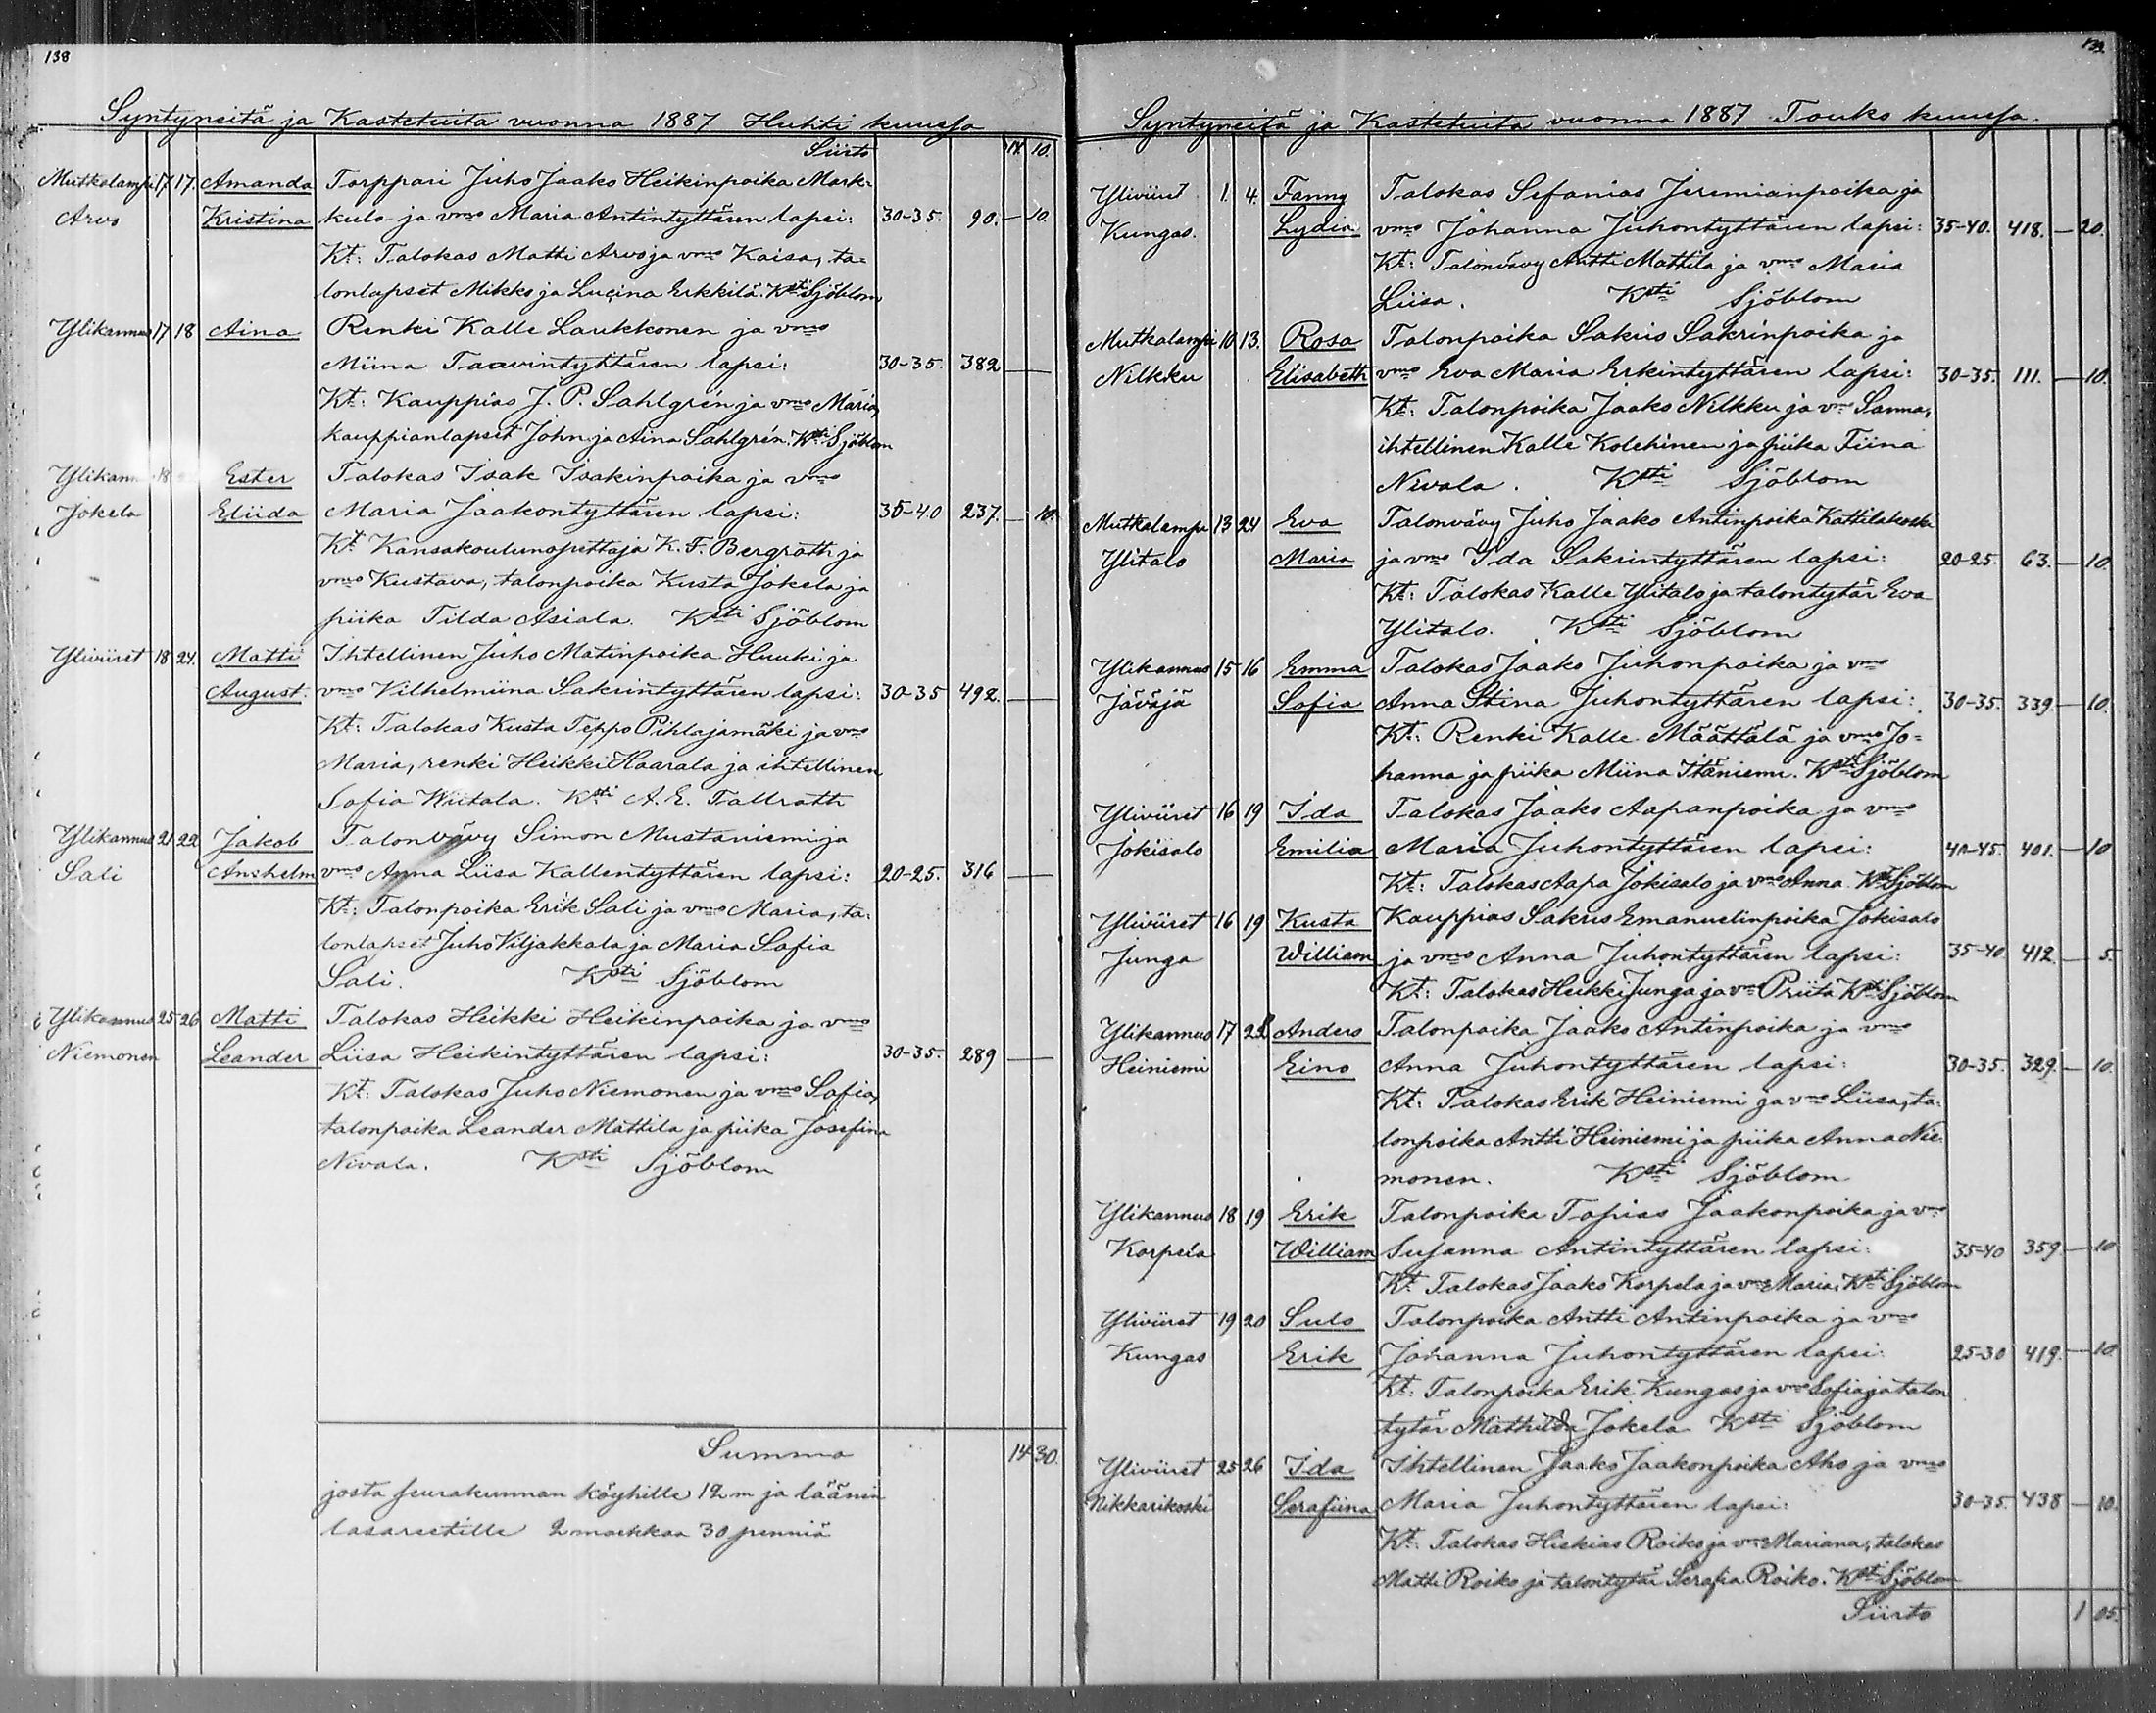 138
Syntyneitä ja Kastetuita vuonna 1887 Huhti kuussa
Siirto 14 10.
Mutkalampi 17 17. Amanda Torppari Juho Jaako Heikinpoika Mark-
Arvo Kristina kula ja vmo Maria Antintyttären lapsi: 30-35. 90. — 10.
Kt: Talokas Matti Arvo ja vmo Kaisa, ta-
lonlapset Mikko ja Lucina Erkkilä. Ksti Sjöblom
Ylikannus 17 18 Aina Renki Kalle Laukkonen ja vmo
Miina Taavintyttären lapsi: 30-35. 382 —
Kt: Kauppias J. P. Sahlgrén ja vmo Maria,
kauppianlapset John ja Aina Sahlgrén. Ksti Sjöblom
Ylikann 18 Ester Talokas Isak Isakinpoika ja vmo
Jokela Eliida Maria Jaakontyttären lapsi: 35-40 237. — 10.
Kt Kansakoulunopettaja K. F. Bergroth ja
vmo Kustava, talonpoika Kusta Jokela ja
piika Tilda Asiala. Ksti Sjöblom
Yliviiret 18 24. Matti Ihtellinen Juho Matinpoika Huuki ja
August. vmo Vilhelmiina Sakrintyttären lapsi: 30-35 492. —
Kt: Talokas Kusta Teppo Pihlajamäki ja vmo
Maria, renki Heikki Haarala ja ihtellinen
Sofia Wiitala. Ksti A. E. Tallroth
Ylikannus 21 22 Jakob Talonvävy Simon Mustaniemi ja
Sali Anshelm vmo Anna Liisa Kallentyttären lapsi: 20-25. 316 —
Kt: Talonpoika Erik Sali ja vmo Maria, ta-
lonlapset Juho Viljakkala ja Maria Sofia
Sali. Ksti Sjöblom
Ylikannus 25 26 Matti Talokas Heikki Heikinpoika ja vmo
Niemonen Leander Liisa Heikintyttären lapsi: 30-35. 289 —
Kt: Talokas Juho Niemonen ja vmo Sofia,
talonpoika Leander Mattila ja piika Josefina
Nivala. Ksti Sjöblom
Summa 14 30.
josta seurakunnan köyhille 12 m ja läänin
lasaretille 2 markkaa 30 penniä
139.
Syntyneitä ja Kastetuita vuonna 1887 Touko kuussa.
Yliviiret 1. 4. Fanny Talokas Sefanias Jeremianpoika ja
Kungas. Lydia vmo Johanna Juhontyttären lapsi: 35-40. 418. — 20.
Kt: Talonvävy Antti Mattila ja vmo Maria
Liisa. Ksti Sjöblom
Mutkalampi 10 13. Rosa Talonpoika Sakris Sakrinpoika ja
Nilkku Elisabeth vmo Eva Maria Erkintyttären lapsi: 30-35. 111. — 10.
Kt: Talonpoika Jaako Nilkku ja vmo Sanna,
ihtellinen Kalle Kolehinen ja piika Tiina
Nivala. Ksti Sjöblom
Mutkalampi 13 24 Eva Talonvävy Juho Jaako Antinpoika Kattilakoski
Ylitalo Maria ja vmo Ida Sakrintyttären lapsi: 20-25. 63. — 10.
Kt: Talokas Kalle Ylitalo ja talontytär Eva
Ylitalo. Ksti Sjöblom
Ylikannus 15 16 Emma Talokas Jaako Juhonpoika ja vmo
Jäväjä Sofia Anna Stina Juhontyttären lapsi: 30-35. 339. — 10.
Kt: Renki Kalle Määttälä ja vmo Jo-
hanna ja piika Miina Itäniemi. Ksti Sjöblom
Yliviiret 16 19 Ida Talokas Jaako Aapanpoika ja vmo
Jokisalo Emilia Maria Juhontyttären lapsi: 40-45. 401. — 10
Kt: Talokas Aapa Jokisalo ja vmo Anna. Ksti Sjöblom
Yliviiret 16 19 Kusta Kauppias Sakris Emanuelinpoika Jokisalo
Junga William ja vmo Anna Juhontyttären lapsi: 35-40. 412. — 5.
Kt: Talokas Heikki Junga ja vmo Priita Ksti Sjöblom
Ylikannus 17 22 Anders Talonpoika Jaako Antinpoika ja vmo
Heiniemi Eino Anna Juhontyttären lapsi: 30-35. 329. — 10.
Kt: Talokas Erik Heiniemi ja vmo Liisa, ta-
lonpoika Antti Heiniemi ja piika Anna Nie-
monen. Ksti Sjöblom
Ylikannus 18 19 Erik Talonpoika Topias Jaakonpoika ja vmo
Korpela William Susanna Antintyttären lapsi: 35-40 359. — 10
Kt Talokas Jaako Korpela ja vmo Maria. Ksti Sjöblom
Yliviiret 19 20 Sulo Talonpoika Antti Antinpoika ja vmo
Kungas Erik Johanna Juhontyttären lapsi: 25-30 419. — 10.
Kt: Talonpoika Erik Kungas ja vmo Sofia ja talon
tytär Mathilda Jokela Ksti Sjöblom
Yliviiret 25 26 Ida Ihtellinen Jaako Jaakonpoika Aho ja vmo
Nikkarikoski Serafiina Maria Juhontyttären lapsi: 30-35. 438 — 10.
Kt: Talokas Hiskias Roiko ja vmo Mariana, talokas
Matti Roiko ja talontytär Serafia Roiko. Ksti Sjöblom
Siirto 1 05.